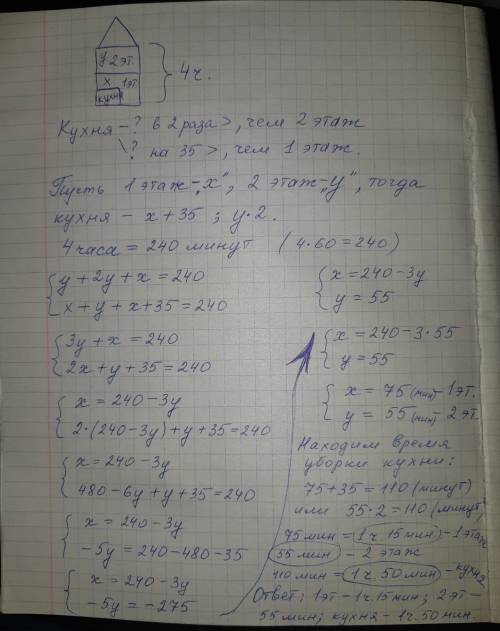 y 2 эт.
x 1 эт.
кухн
4 ч.
Кухня - ? в 2 раза >, чем 2 этаж
? на 35 >, чем 1 этаж.
Пусть 1 этаж - „x", 2 этаж - „y", тогда
кухня - x + 35 ; y · 2.
4 часа = 240 минут ( 4 · 60 = 240)
{ y + 2y + x = 240
x + y + x + 35 = 240
{ 3y + x = 240
2x + y + 35 = 240
{ x = 240 - 3y
2 · (240 - 3y) + y + 35 = 240
{ x = 240 - 3y
480 - 6y + y + 35 = 240
{ x = 240 - 3y
-5y = 240 - 480 - 35
{ x = 240 - 3y
-5y = -275
{ x = 240 - 3y
y = 55
{ x = 240 - 3 · 55
y = 55
{ x = 75 (мин) - 1 эт.
y = 55 (мин) - 2 эт.
Находим время
уборки кухни:
75 + 35 = 110 (минут)
или 55 · 2 = 110 (минут)
75 мин = 1 ч 15 мин - 1 этаж
55 мин - 2 этаж
110 мин = 1 ч. 50 мин - кухня
Ответ: 1 эт - 1 ч. 15 мин; 2 эт -
55 мин; кухня - 1 ч. 50 мин.